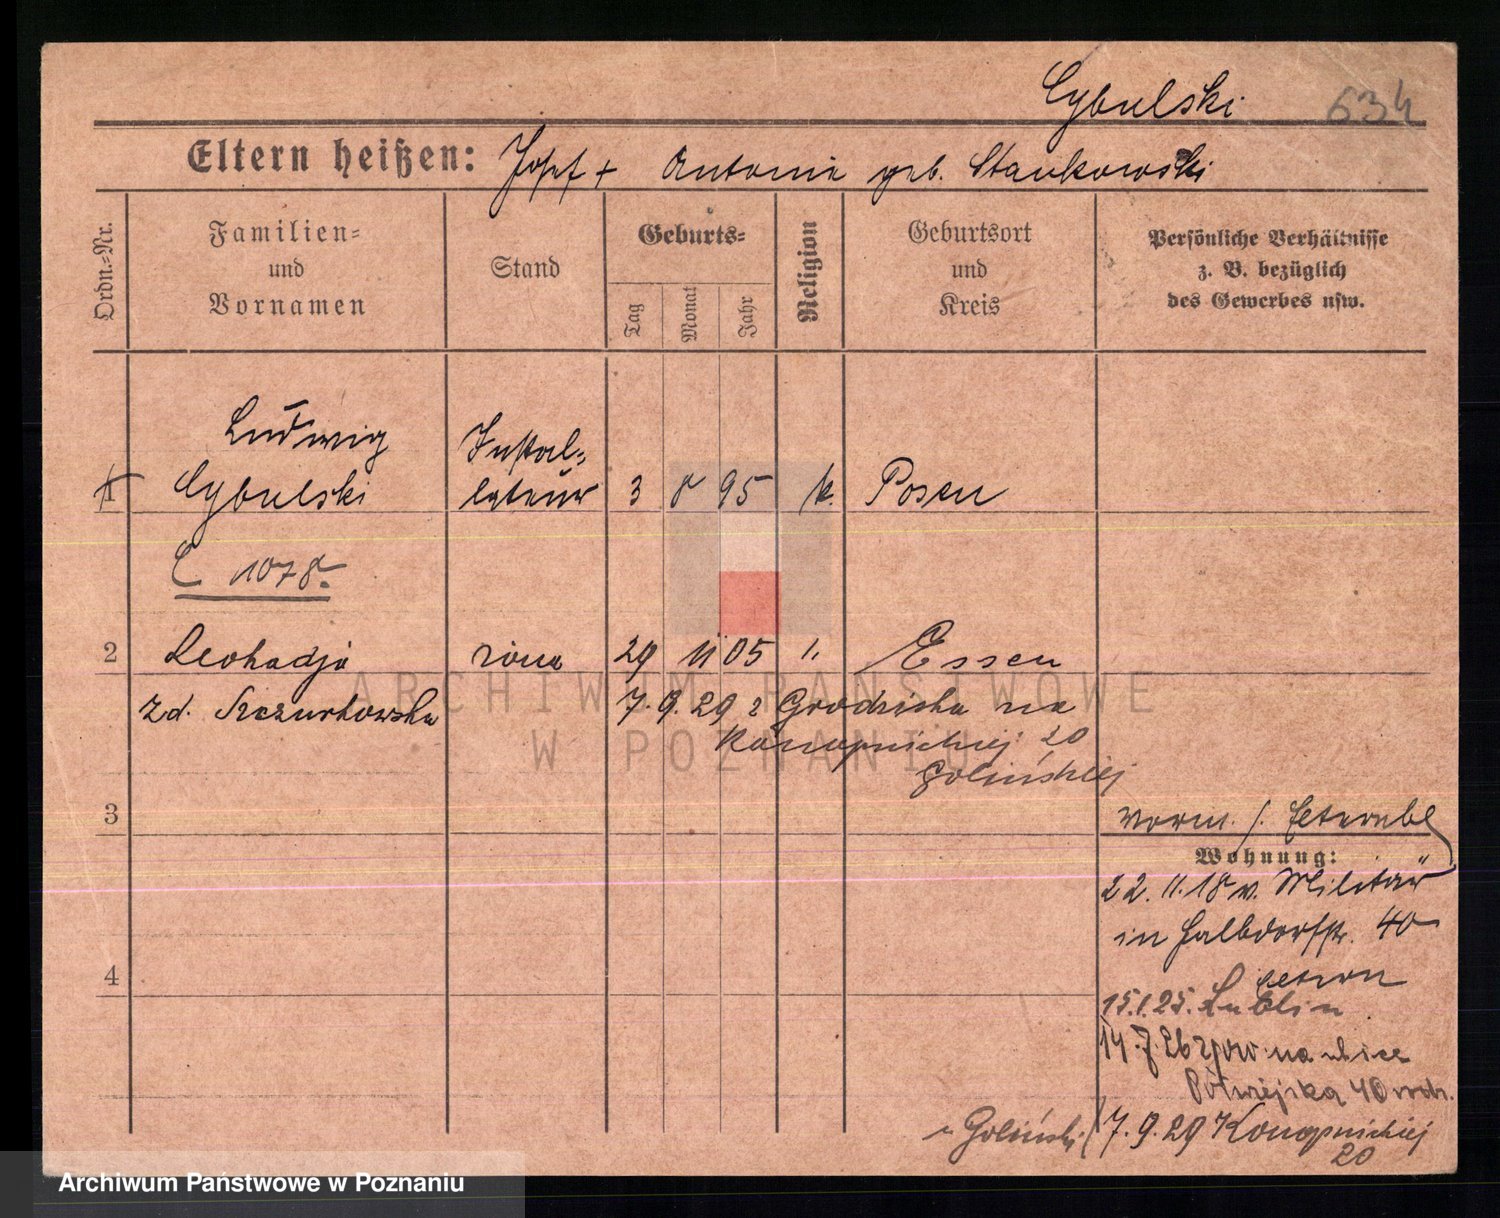 Cybulski 634
Eltern heißen: Josef + Antonie geb. Stankowski
Ordn.-Nr.
Familien-
und
Vornamen
Stand
Geburts-
Tag
Monat
Jahr
Religion
Geburtsort
und
Kreis
Persönliche Verhältnisse
z. B. bezüglich
des Gewerbes usw.
Ludwig Instal-
1 Cybulski lateur 3 8 95 k. Posen
C 1078
2 Leokadja żona 29 11 05 Essen
zd. Szczurkowska 7.9.29 z Grodziska na
Konopnickiej 20
Golińskiej
3
vorm.
Wohnung:
22.11.18 v. Militär
in Halbdorfstr. 40
Eltern
15.1.25. Lublin
4
14.7.26 na ulice
Półwiejska 40 rodz.
Goliński 7.9.29 Konopnickiej
20
ARCHIWUM PAŃSTWOWE
W POZNANIU
Archiwum Państwowe w Poznaniu